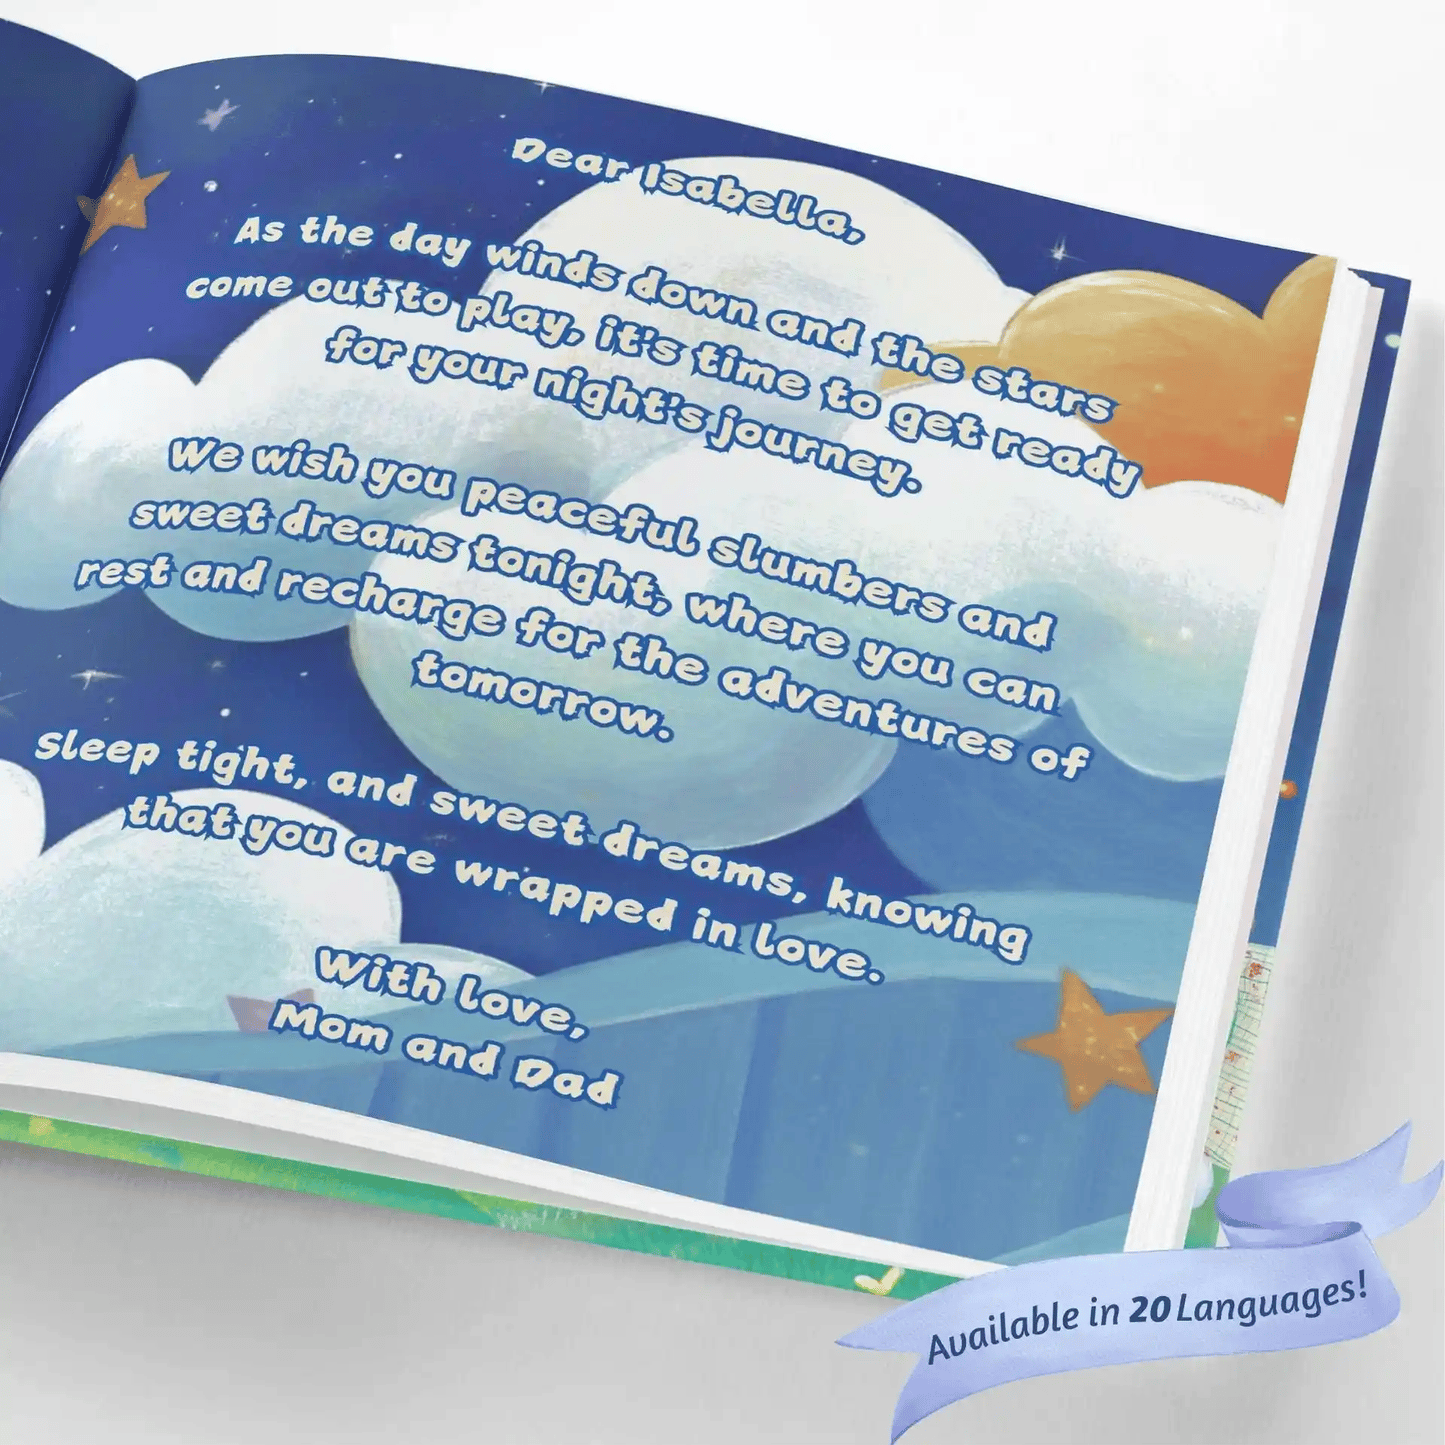 Dear Isabella,
As the day winds down and the stars
come out to play, it's time to get ready
for your night's journey.
We wish you peaceful slumbers and
sweet dreams tonight, where you can
rest and recharge for the adventures of
tomorrow.
Sleep tight, and sweet dreams, knowing
that you are wrapped in love.
With love,
Mom and Dad
Available in 20 Languages!